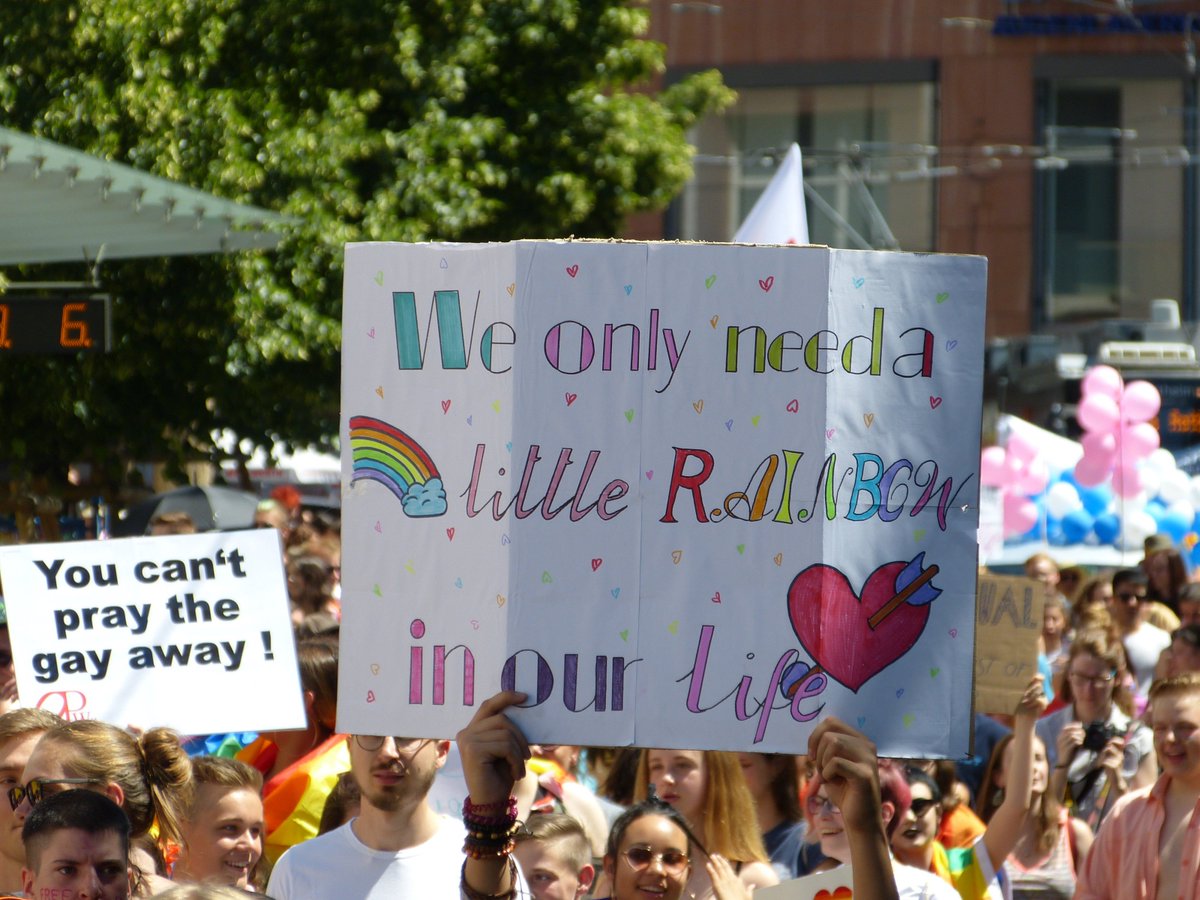 We only need a
little RAINBOW
in our life
You can't
pray the
gay away !
6.